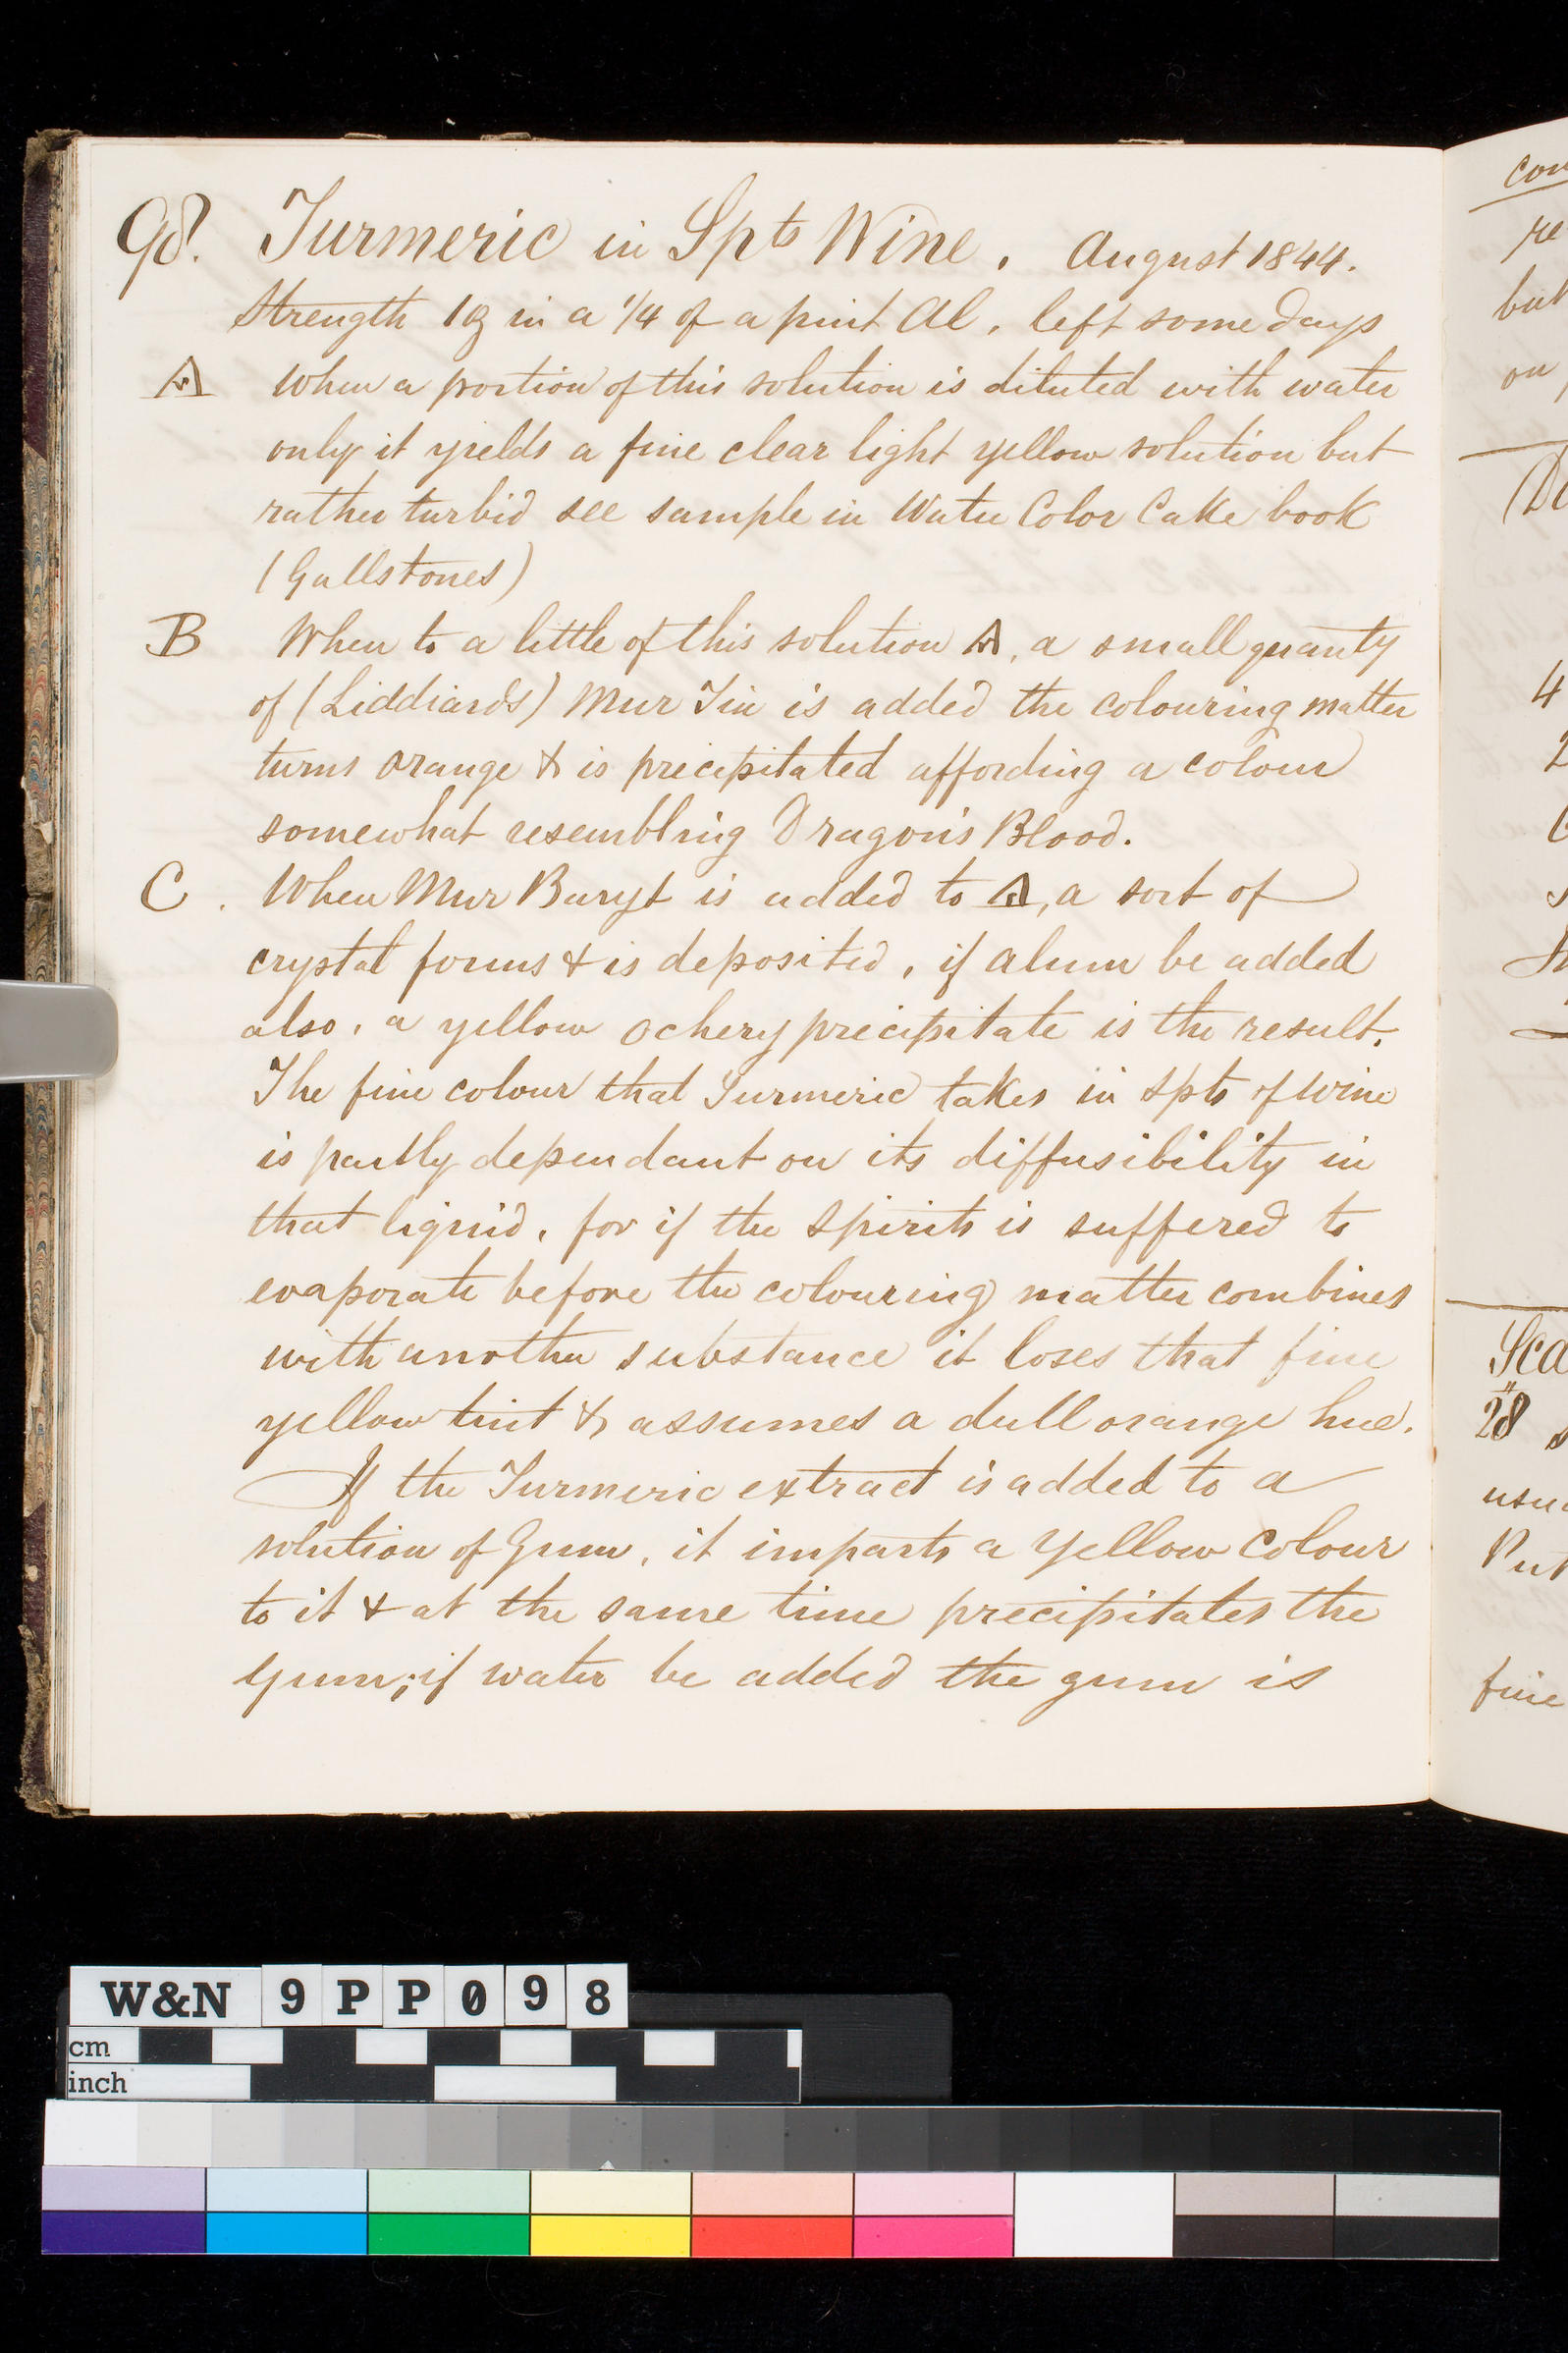 98. Turmeric in Spts Wine. August 1844.
Strength 1℥ in a 1/4 of a pint Al. left some days
A When a portion of this solution is diluted with water
only it yields a fine clear light yellow solution but
rather turbid see sample in Water Color Cake book
(Gallstones)
B When to a little of this solution A, a small quanty
of (Liddiards) Mur Tin is added the colouring matter
turns orange & is precipitated affording a colour
somewhat resembling Dragon's Blood.
C. When Mur Baryt is added to A, a sort of
crystal forms & is deposited, if alum be added
also, a yellow ochery precipitate is the result.
The fine colour that Turmeric takes in Spts of wine
is partly dependant on its diffusibility in
that liquid, for if the spirits is suffered to
evaporate before the colouring matter combines
with another substance it loses that fine
yellow tint & assumes a dull orange hue.
If the Turmeric extract is added to a
solution of Gum, it imparts a yellow colour
to it & at the same time precipitates the
gum; if water be added the gum is
con
re
but
on
4
2
Sca
28
usu
Put
fine
W&N 9PP098
cm
inch